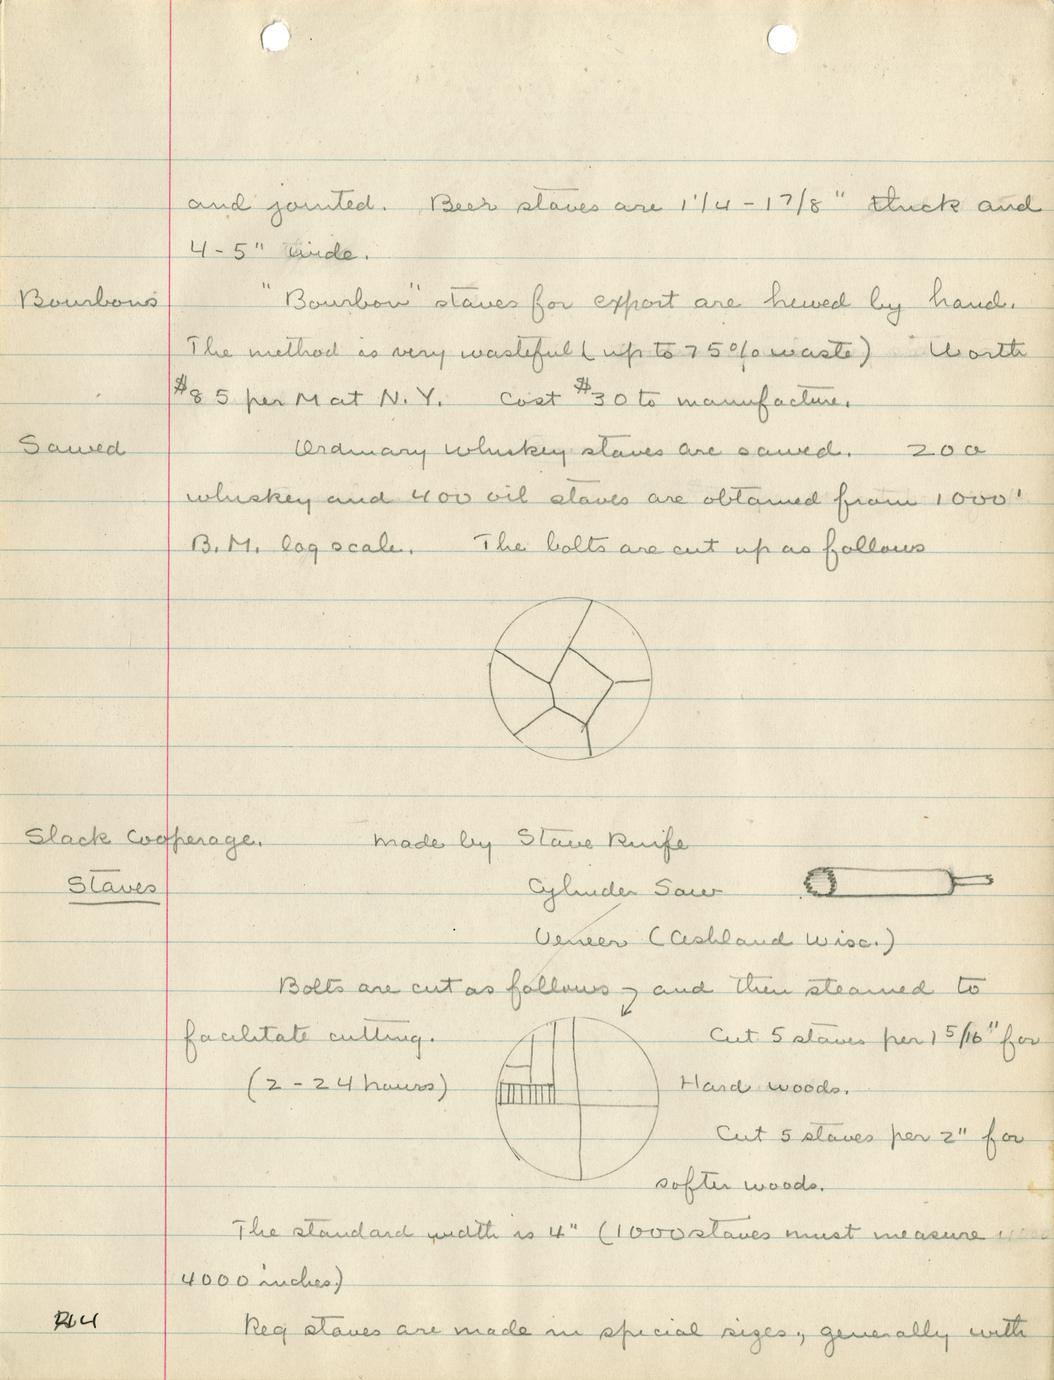 and jointed. Beer staves are 1 1/4 - 1 7/8" thick and
4-5" wide.
Bourbons "Bourbon" staves for export are hewed by hand.
The method is very wasteful (up to 75% waste) Worth
$85 per M at N.Y. Cost $30 to manufacture.
Sawed Ordinary whiskey staves are sawed. 200
whiskey and 400 oil staves are obtained from 1000'
B.M. log scale. The bolts are cut up as follows
Slack Cooperage. made by Stave Knife
Staves Cylinder Saw
Veneer (Ashland Wisc.)
Bolts are cut as follows and then steamed to
facilitate cutting. Cut 5 staves per 1 5/16" for
(2-24 hours) Hard woods.
Cut 5 staves per 2" for
softer woods.
The standard width is 4" (1000 staves must measure
4000 inches)
Keg staves are made in special sizes, generally with